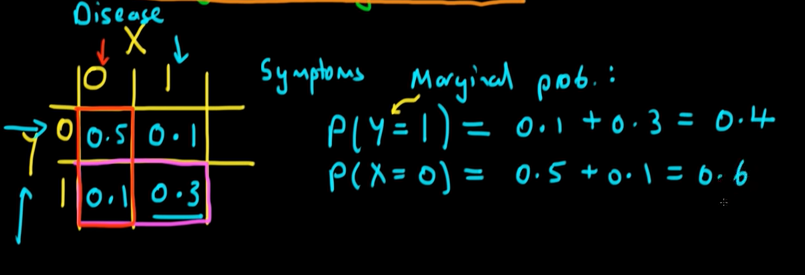 Disease
X
0 1
Y 0 0.5 0.1
1 0.1 0.3
Symptoms Marginal prob.:
P(Y=1) = 0.1 + 0.3 = 0.4
P(X=0) = 0.5 + 0.1 = 0.6